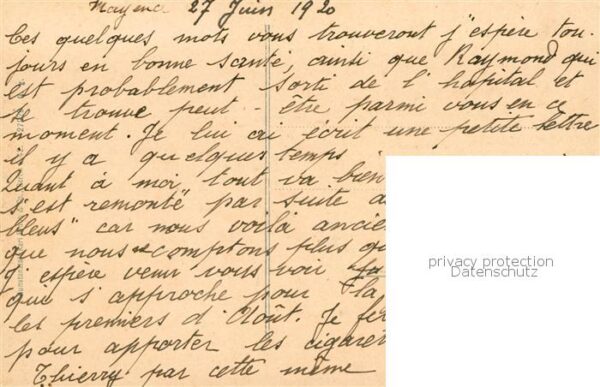 Mayence 27 Juin 1920
Ces quelques mots vous trouveront j'espère tou-
jours en bonne santé, ainsi que Raymond qui
est probablement sorti de l'hopital et
se trouve peut-être parmi vous en ce
moment. Je lui ai écrit une petite lettre
il y a quelques temps
Quant à moi, tout va bien
s'est remonté par suite d
bleus" car nous voilà ancie
que nous comptons plus qu
J'espère venir vous voir
que s'approche pour
les premiers d'Août. Je fer
pour apporter les cigaret
Thierry par cette même
privacy protection
Datenschutz